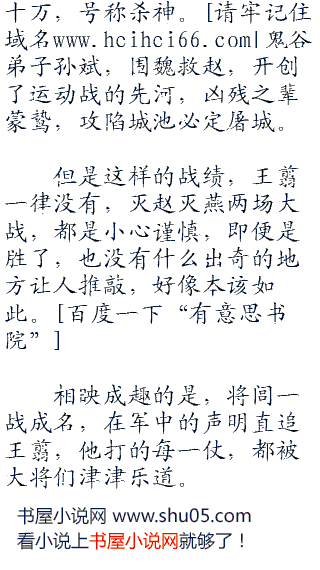 十万，号称杀神。[请牢记住
域名www.hcihci66.com|鬼谷
弟子孙斌，围魏救赵，开创
了运动战的先河，凶残之辈
蒙骜，攻陷城池必定屠城。
但是这样的战绩，王翦
一律没有，灭赵灭燕两场大
战，都是小心谨慎，即便是
胜了，也没有什么出奇的地
方让人推敲，好像本该如
此。[百度一下“有意思书
院”]
相映成趣的是，将闾一
战成名，在军中的声明直追
王翦，他打的每一仗，都被
大将们津津乐道。
书屋小说网 www.shu05.com
看小说上书屋小说网就够了！